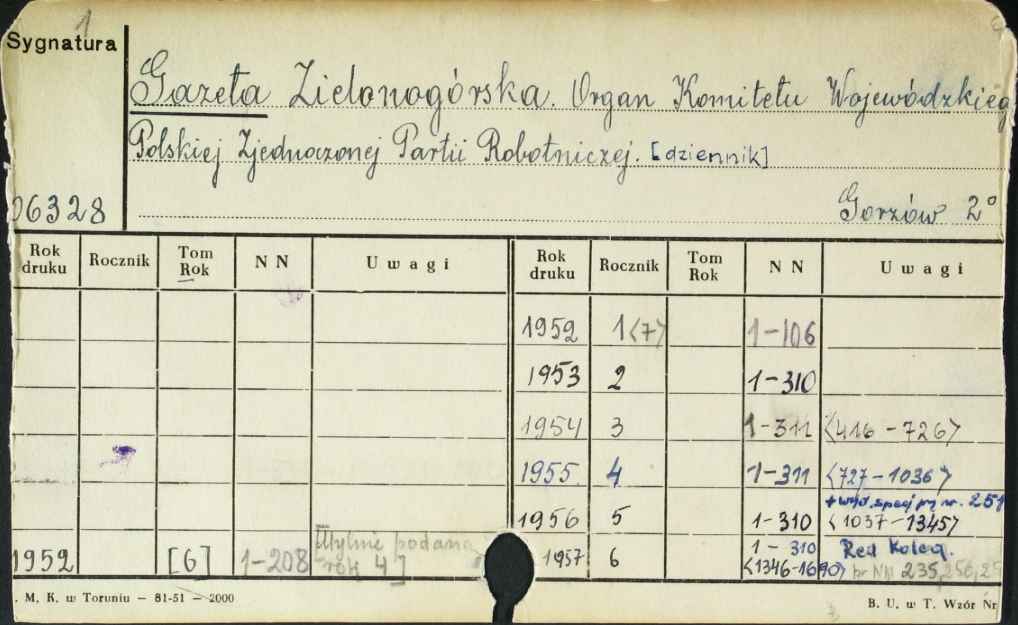 1
Sygnatura
Gazeta Zielonogórska. Organ Komitetu Wojewódzkieg
Polskiej Zjednoczonej Partii Robotniczej. [dziennik]
06328
Gorzów 2°
Rok druku Rocznik Tom Rok NN Uwagi Rok druku Rocznik Tom Rok NN Uwagi
1952 1<7> 1-106
1953 2 1-310
1954 3 1-311 <416-726>
1955. 4 1-311 <727-1036>
1956 5 1-310 <1037-1345>
1952 [6] 1-208 podana rok 4] 1957 6 1-310 <1346-1690> Red Koleg. NN 235, 256, 25
. M. K. w Toruniu — 81-51 — 2000
B. U. w T. Wzór Nr